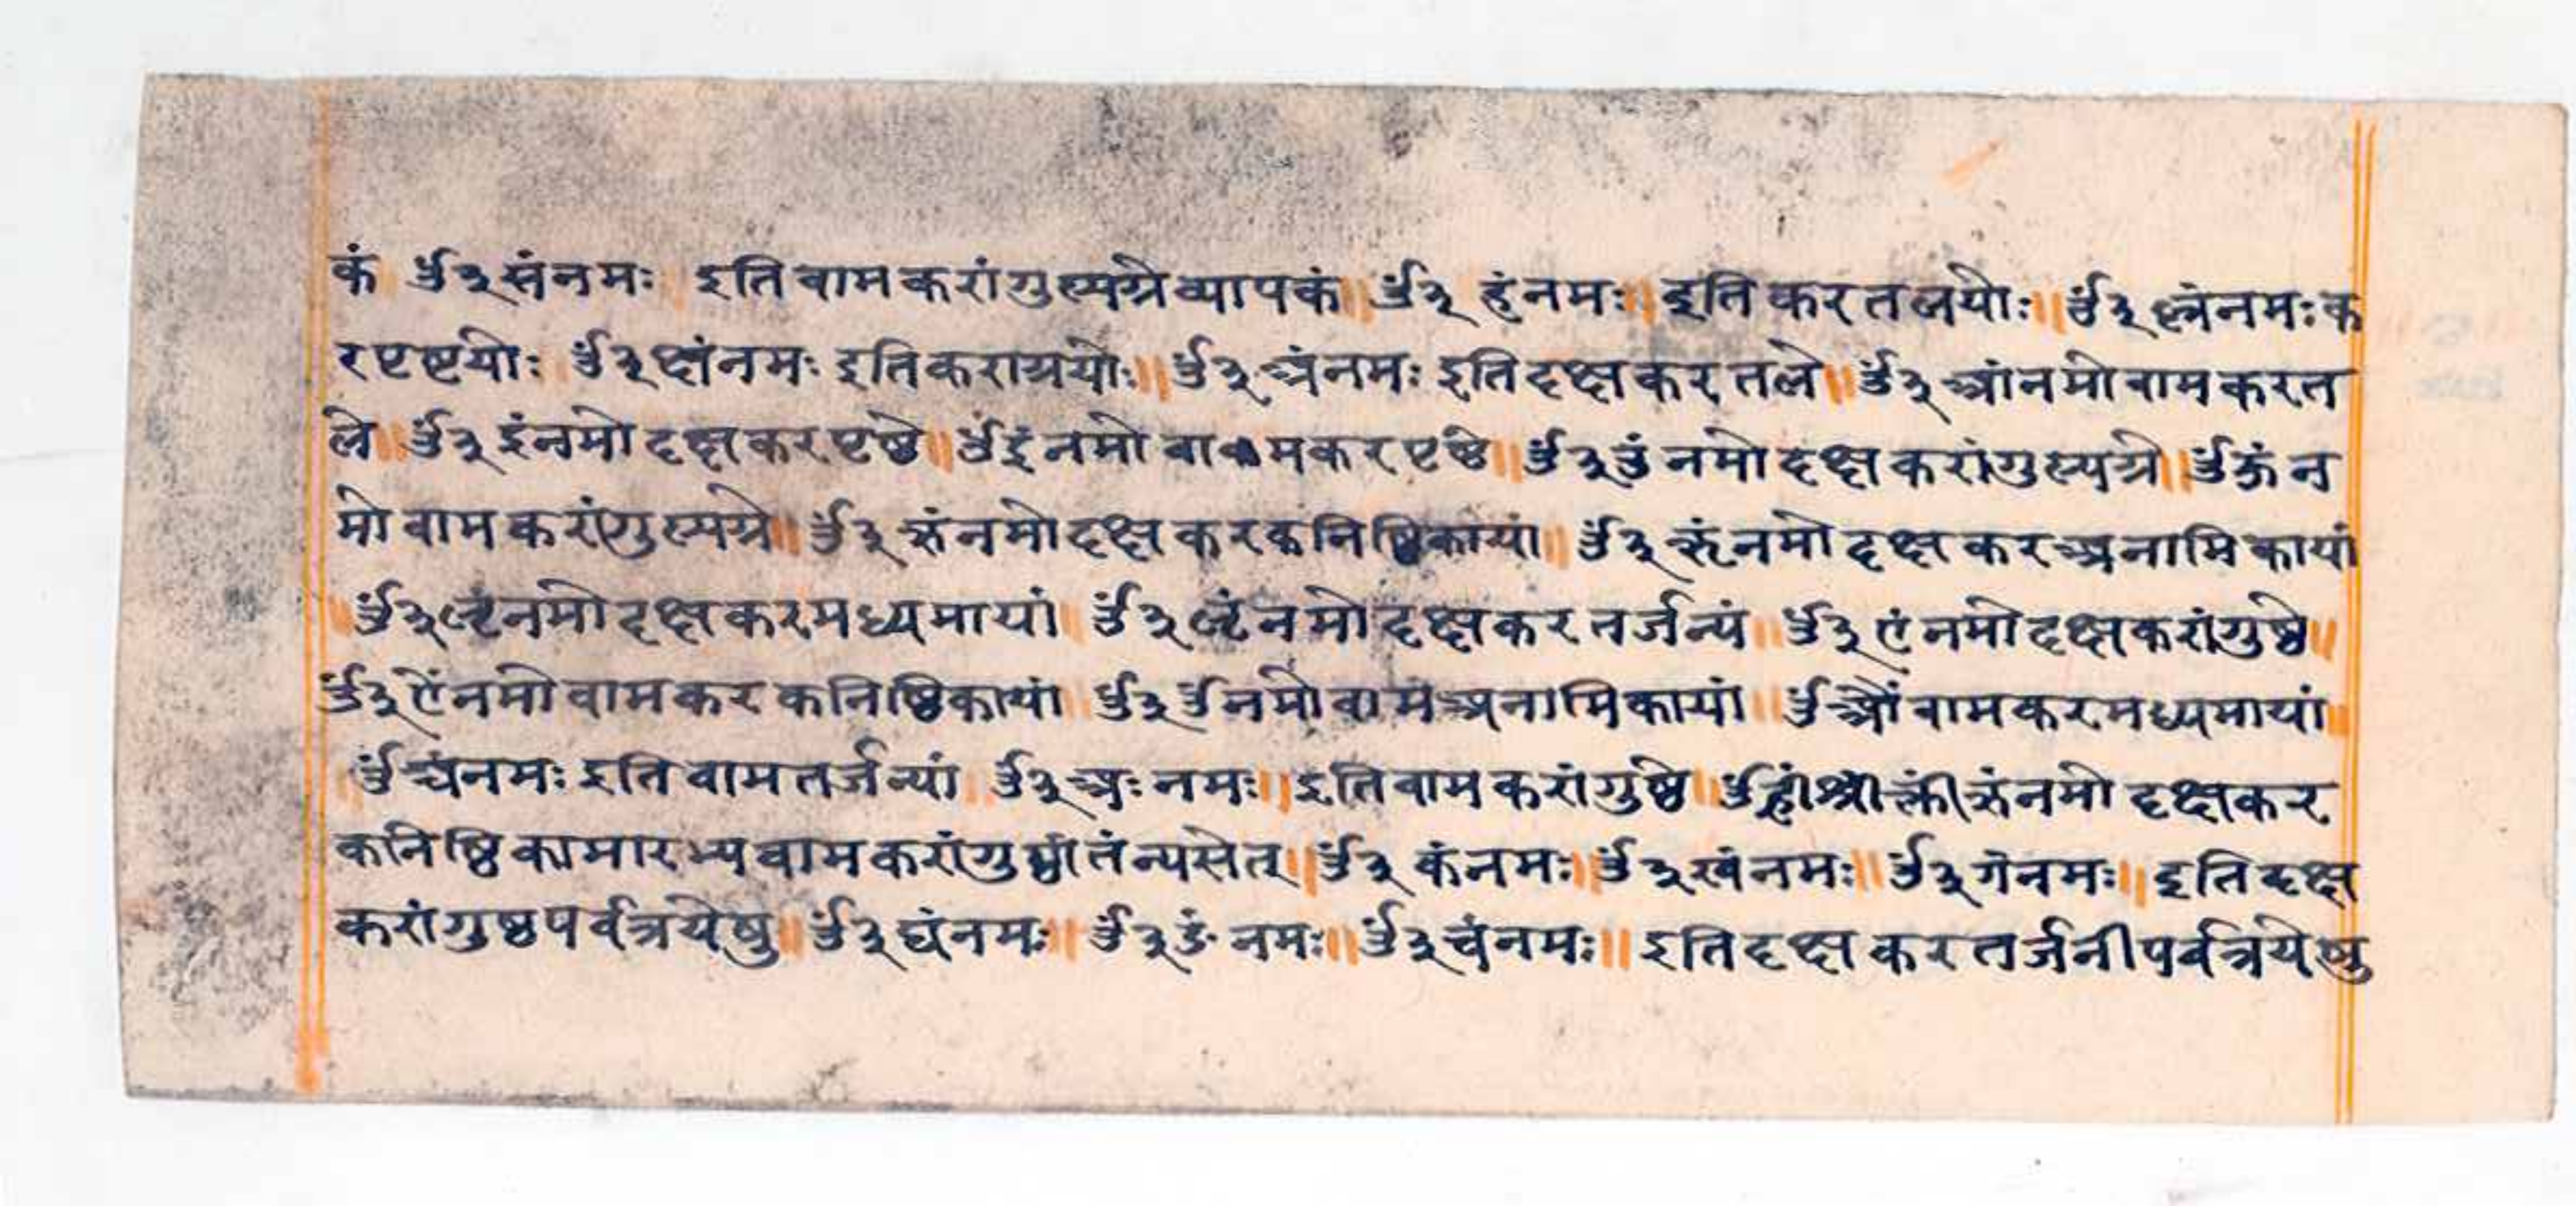 कं ॐ ३ सं नमः इति वामकरांगुल्यग्रे व्यापकं ॥ ॐ ३ हं नमः ॥ इति करतलयोः ॥ ॐ ३ ळं नमः क
रपृष्टयोः ॐ ३ क्षं नमः इति कराग्रयोः ॥ ॐ ३ अं नमः इति दक्षकरतले ॥ ॐ ३ आं नमो वामकरत
ले ॥ ॐ ३ इं नमो दक्षकरपृष्ठे ॥ ॐ ईं नमो वामकरपृष्ठे ॥ ॐ ३ उं नमो दक्षकरांगुल्यग्रे ॥ ॐ ऊं न
मो वामकरांगुल्यग्रे ॥ ॐ ३ ऋं नमो दक्षकरकनिष्ठिकायां ॥ ॐ ३ ॠं नमो दक्षकरअनामिकायां
॥ ॐ ३ ऌं नमो दक्षकरमध्यमायां ॥ ॐ ३ ॡं नमो दक्षकरतर्जन्यं ॥ ॐ ३ एं नमो दक्षकरांगुष्ठे ॥
ॐ ३ ऐं नमो वामकरकनिष्ठिकायां ॥ ॐ ३ ॐ नमो वामअनामिकायां ॥ ॐ औं वामकरमध्यमायां ॥
ॐ अंनमः इति वामतर्जन्यां ॥ ॐ ३ अः नमः ॥ इति वामकरांगुष्ठे ॥ ॐ ह्रीं श्रीं क्लीं ऋं नमो दक्षकर
कनिष्ठिकामारभ्य वामकरांगुष्ठांतं न्यसेत् ॥ ॐ ३ कं नमः ॥ ॐ ३ खं नमः ॥ ॐ ३ गं नमः ॥ इति दक्ष
करांगुष्ठपर्वत्रयेषु ॥ ॐ ३ घं नमः ॥ ॐ ३ ङं नमः ॥ ॐ ३ चं नमः ॥ इति दक्षकरतर्जनीपर्वत्रयेषु